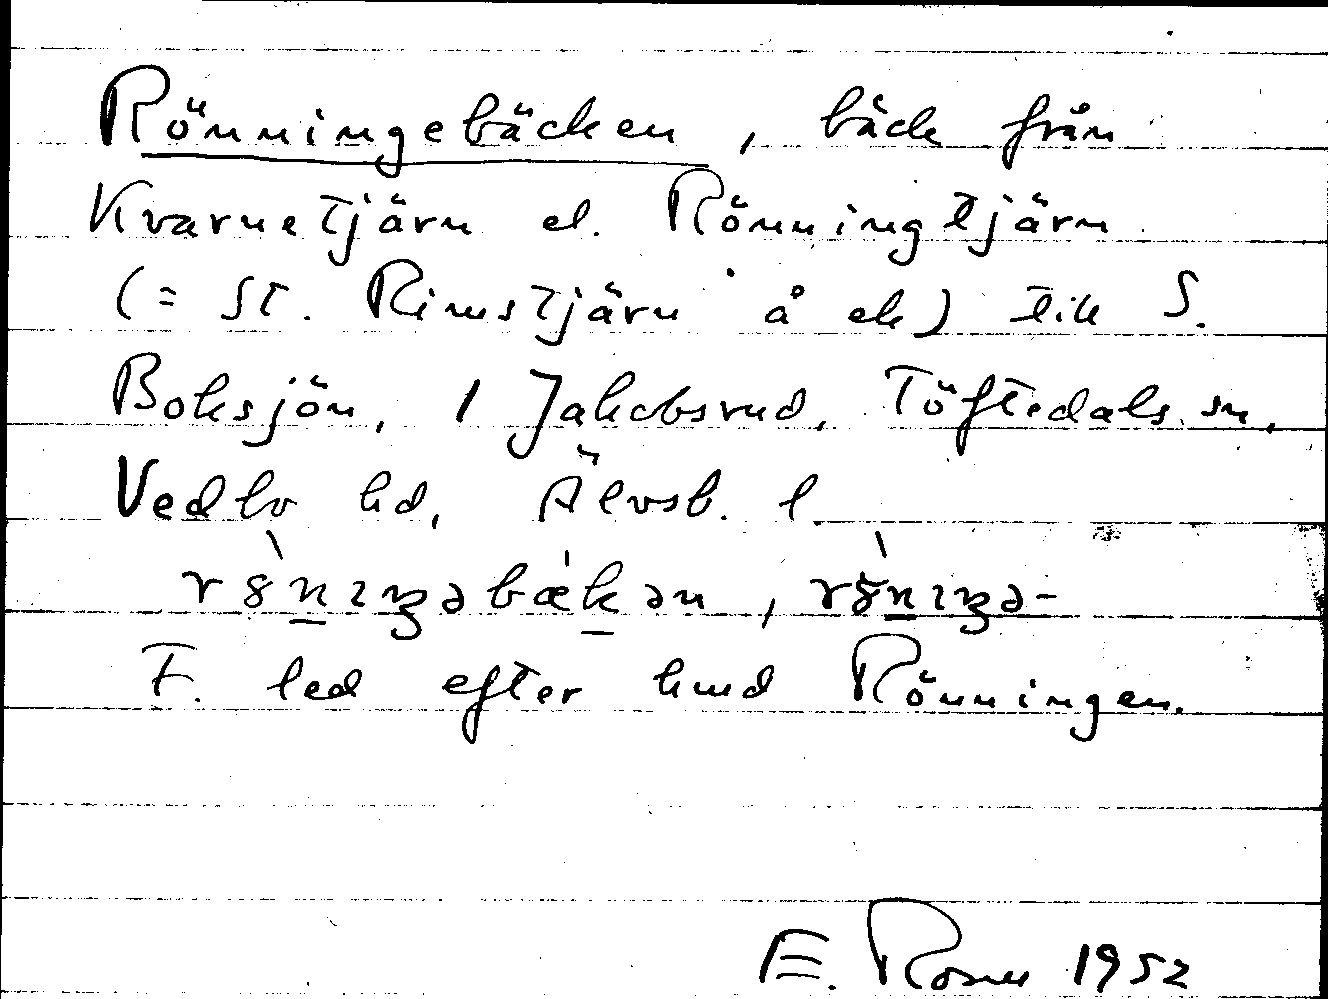 Rönningebäcken, bäck från
Kvarnetjärn el. Rönningtjärn
(= St. Rimstjärn å ek) till S.
Boksjön, 1 Jakobsrud, Töftedals sn,
Vedbo hd, Älvsb. l.
F. led efter hmd Rönningen.
E. 1952